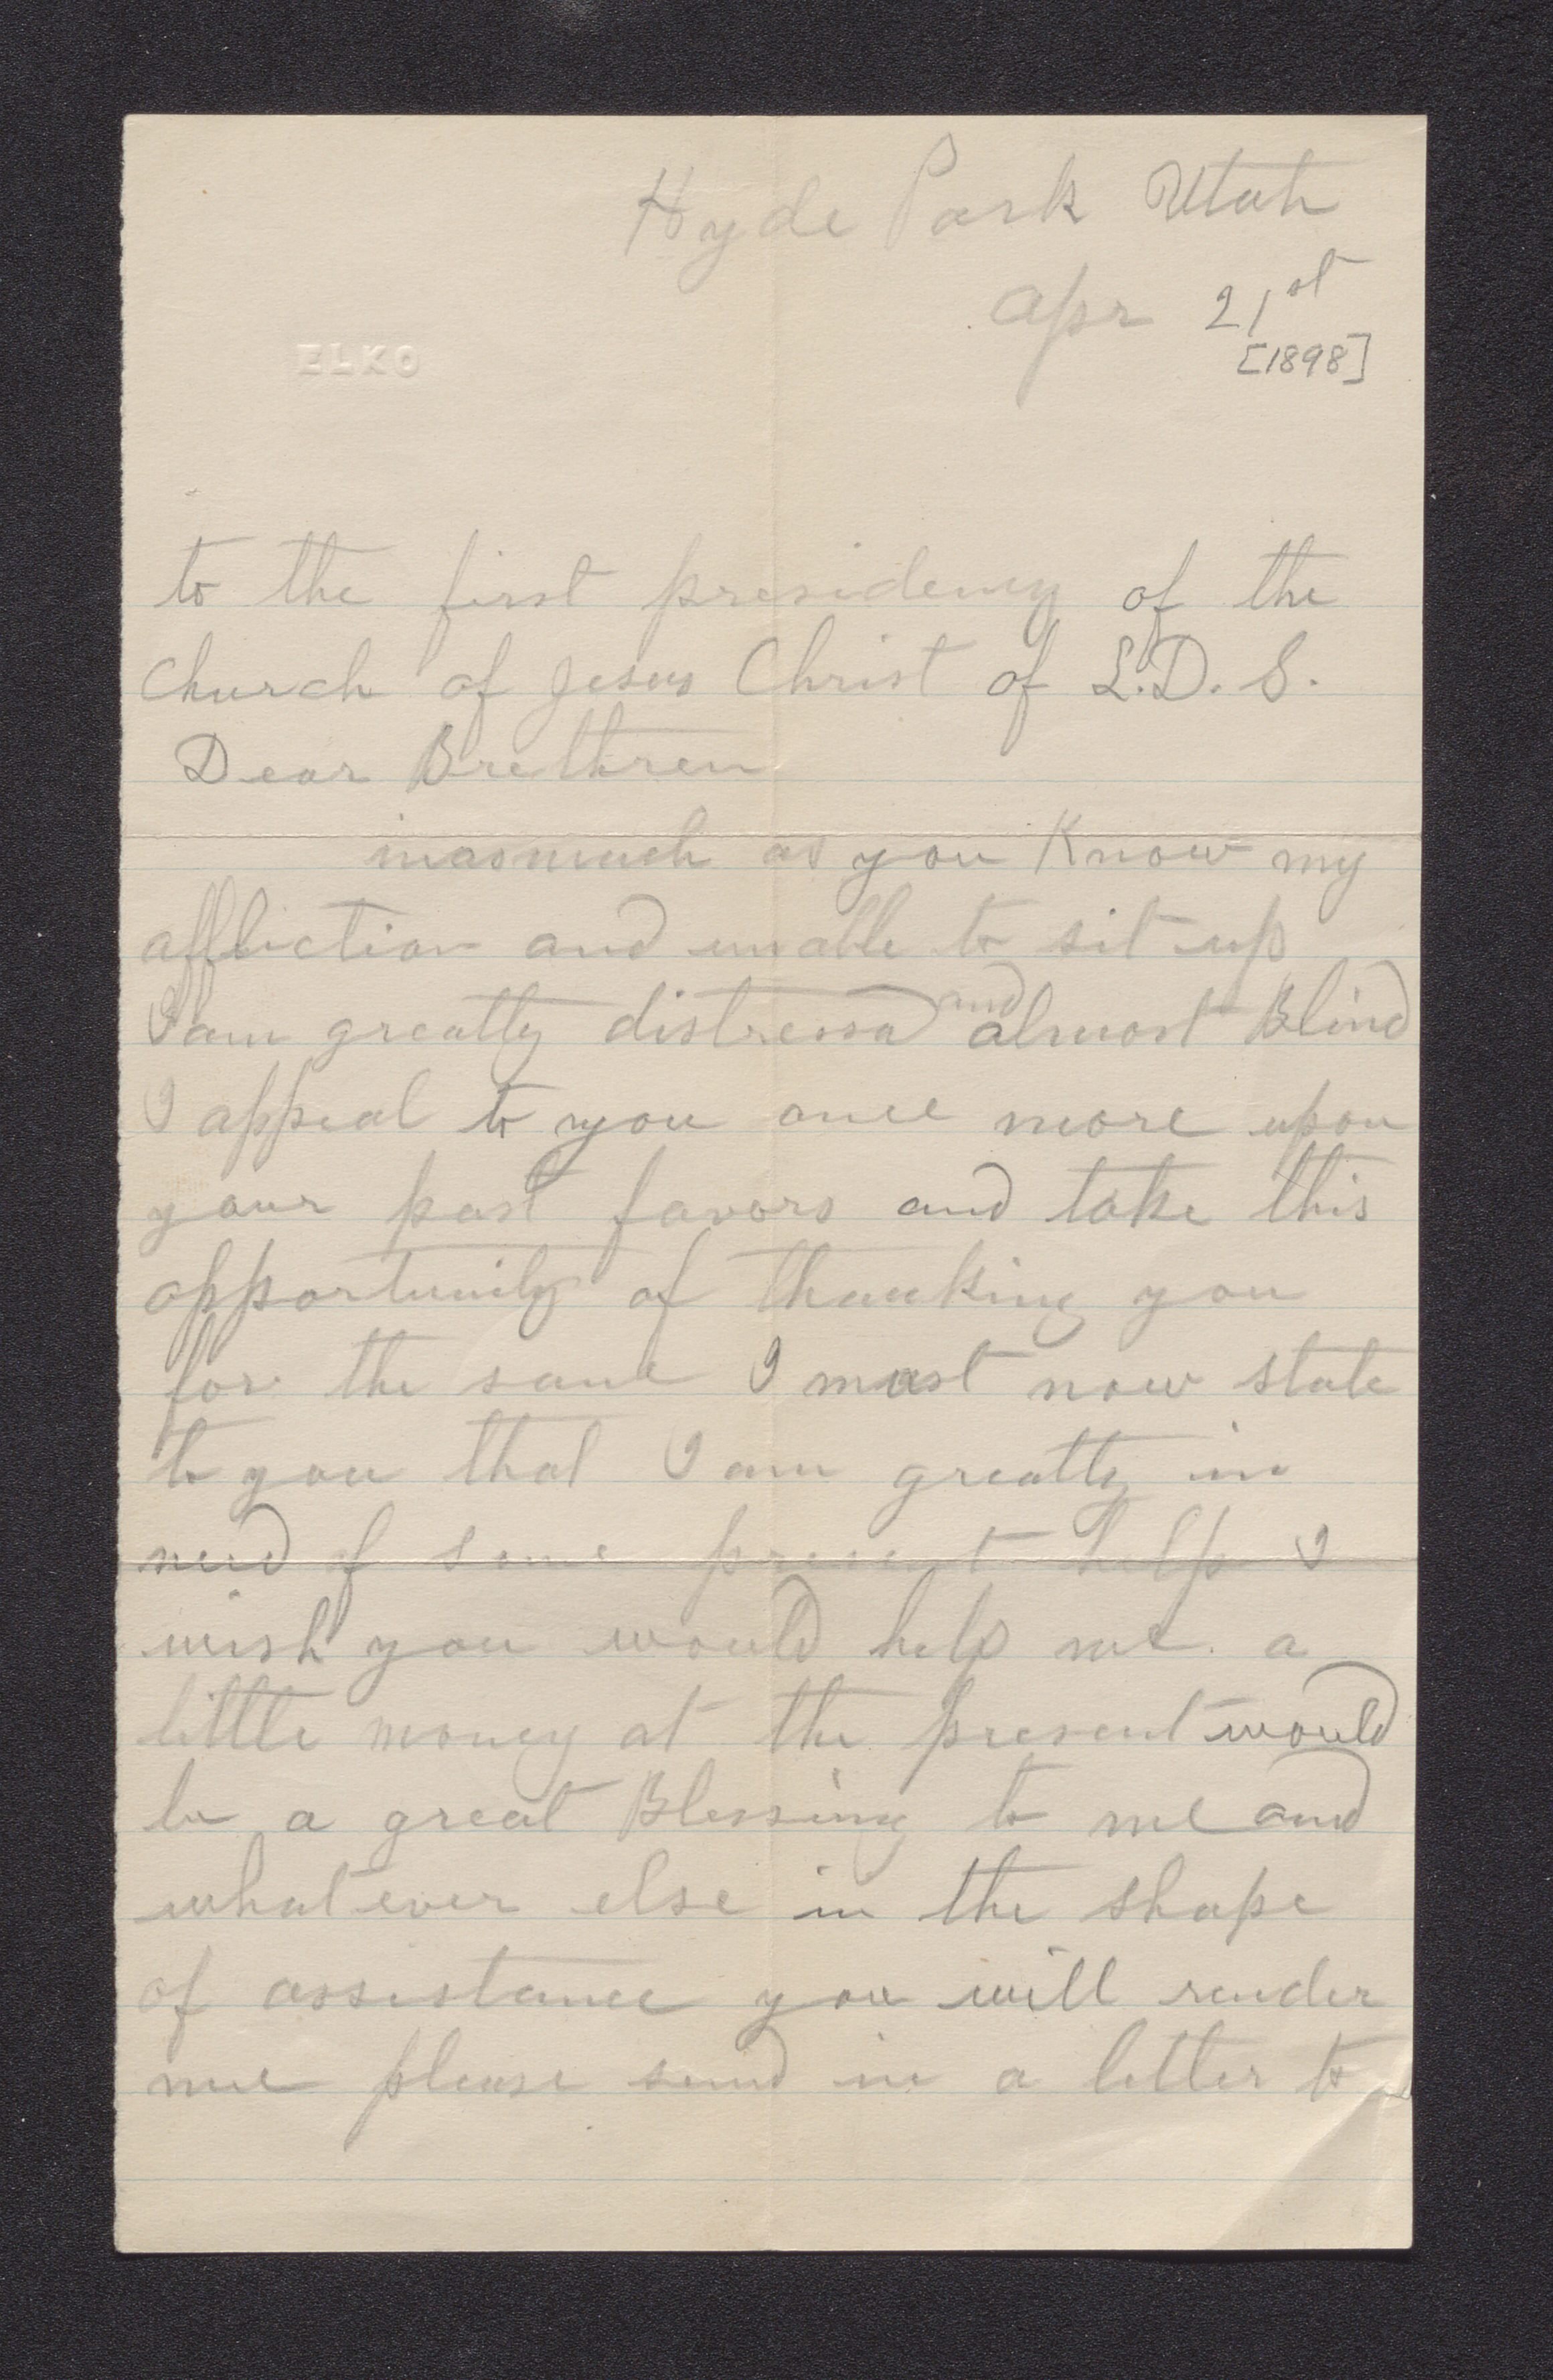 Hyde Park Utah
Apr 21st
[1898]
ELKO
to the first presidency of the
Church of Jesus Christ of L.D.S.
Dear Brethren
inasmuch as you Know my
affliction and unable to sit up
I am greatly distressd and almost Blind
I appeal to you once more upon
your past favors and take this
opportunity of thanking you
for the same I must now state
to you that I am greatly in
need of some present help I
wish you would help me a
little money at the present would
be a great Blessing to me and
whatever else in the shape
of assistance you will render
me please send in a letter to